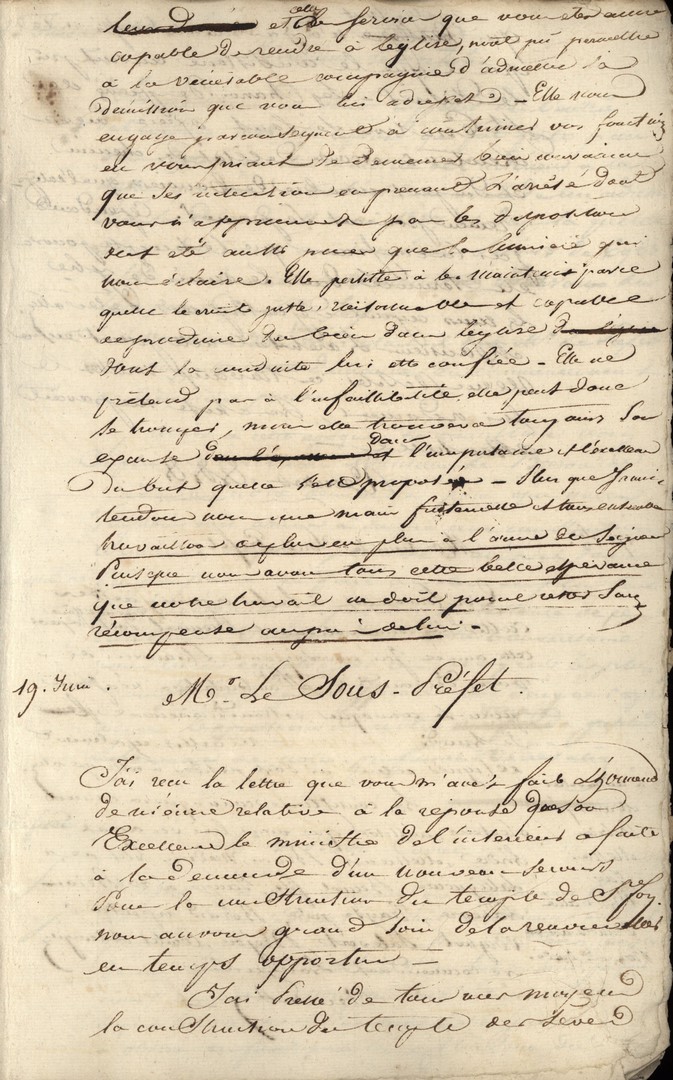 et celle Service que vous etes encore
capable de rendre à l'eglise, n'ont pû permettre
à la vénérable compagnie d'admettre la
demission que vous lui adressez. - Elle vous
engage par consequent à continuer vos fonctions
en vous priant de demeurer bien convaincu
que ses intention en prenant L'arrêté dont
vous n'approuvez pas les disposition
ont été aussi pures que la lumiere qui
nous éclaire. Elle persiste à les maintenir parce
quelle le croit juste, raisonnable et capable
de produire du bien dans l'eglise
dont la conduite lui est confiée - Elle ne
prétend pas à l'infaillibilité, elle peut donc
se tromper, mais elle trouvera toujours son
excuse dans l'importance et l'excellence
du but quelle s'est proposée -
tendons nous une main fraternelle et tous ensemble
travaillons de plus en plus à l'œuvre du Seigneur
Puisque nous avons tous cette belle espérance
que notre travail ne doit point rester sans
récompense auprès de lui. -
19. Juin.
Mr. Le Sous-Préfet.
J'ai reçu la lettre que vous m'avez fait L'honneur
de m'écrire relative à la réponse que Son
Excellence le ministre de l'interieur a faite
à la demande d'un nouveau secours
Pour la construction du temple de Ste Foy.
nous aurons grand soin de la renouveller
en temps opportun -
J'ai Pressé de tous mes moyens
la construction du temple des Leves